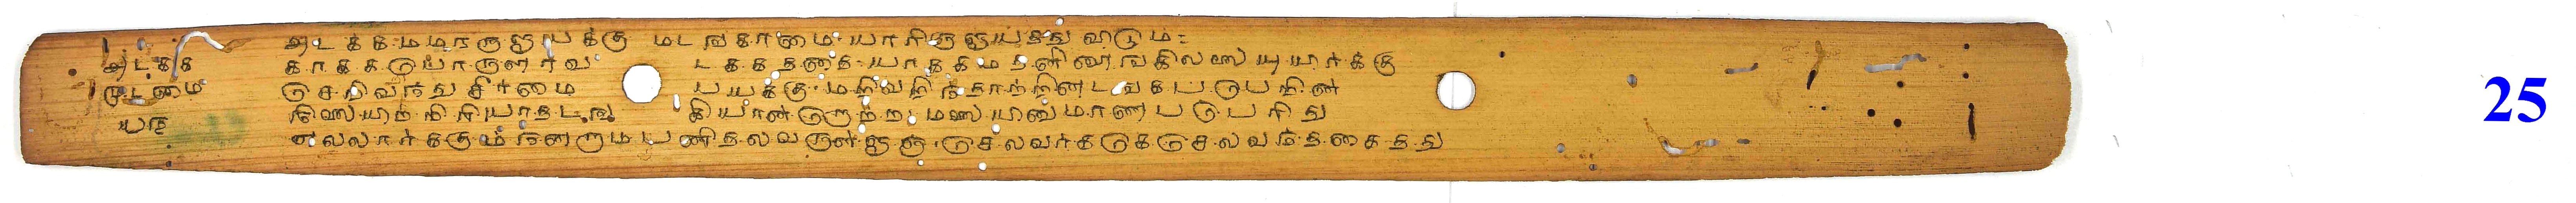 அடக்கமமரருளுயக்கு மடஙகாமையாரிருளுய்த்துவிடும்
அடகக காககபொருளாவ டககததையாககமதனினூஙகிலலையுயிர்க்கு
முடமை செறிவந்துசீர்மை பயக்குமறிவறிந்தாற்றினடஙகபபெறின்
நிலையிற்றிரியாதடங கியான்றோற்றமலையினுமாணபபெரிது
எலலார்க்கும்நனறாமபணிதலவருள்ளுஞசெலவர்ககேசெலவந்தகைதது
25